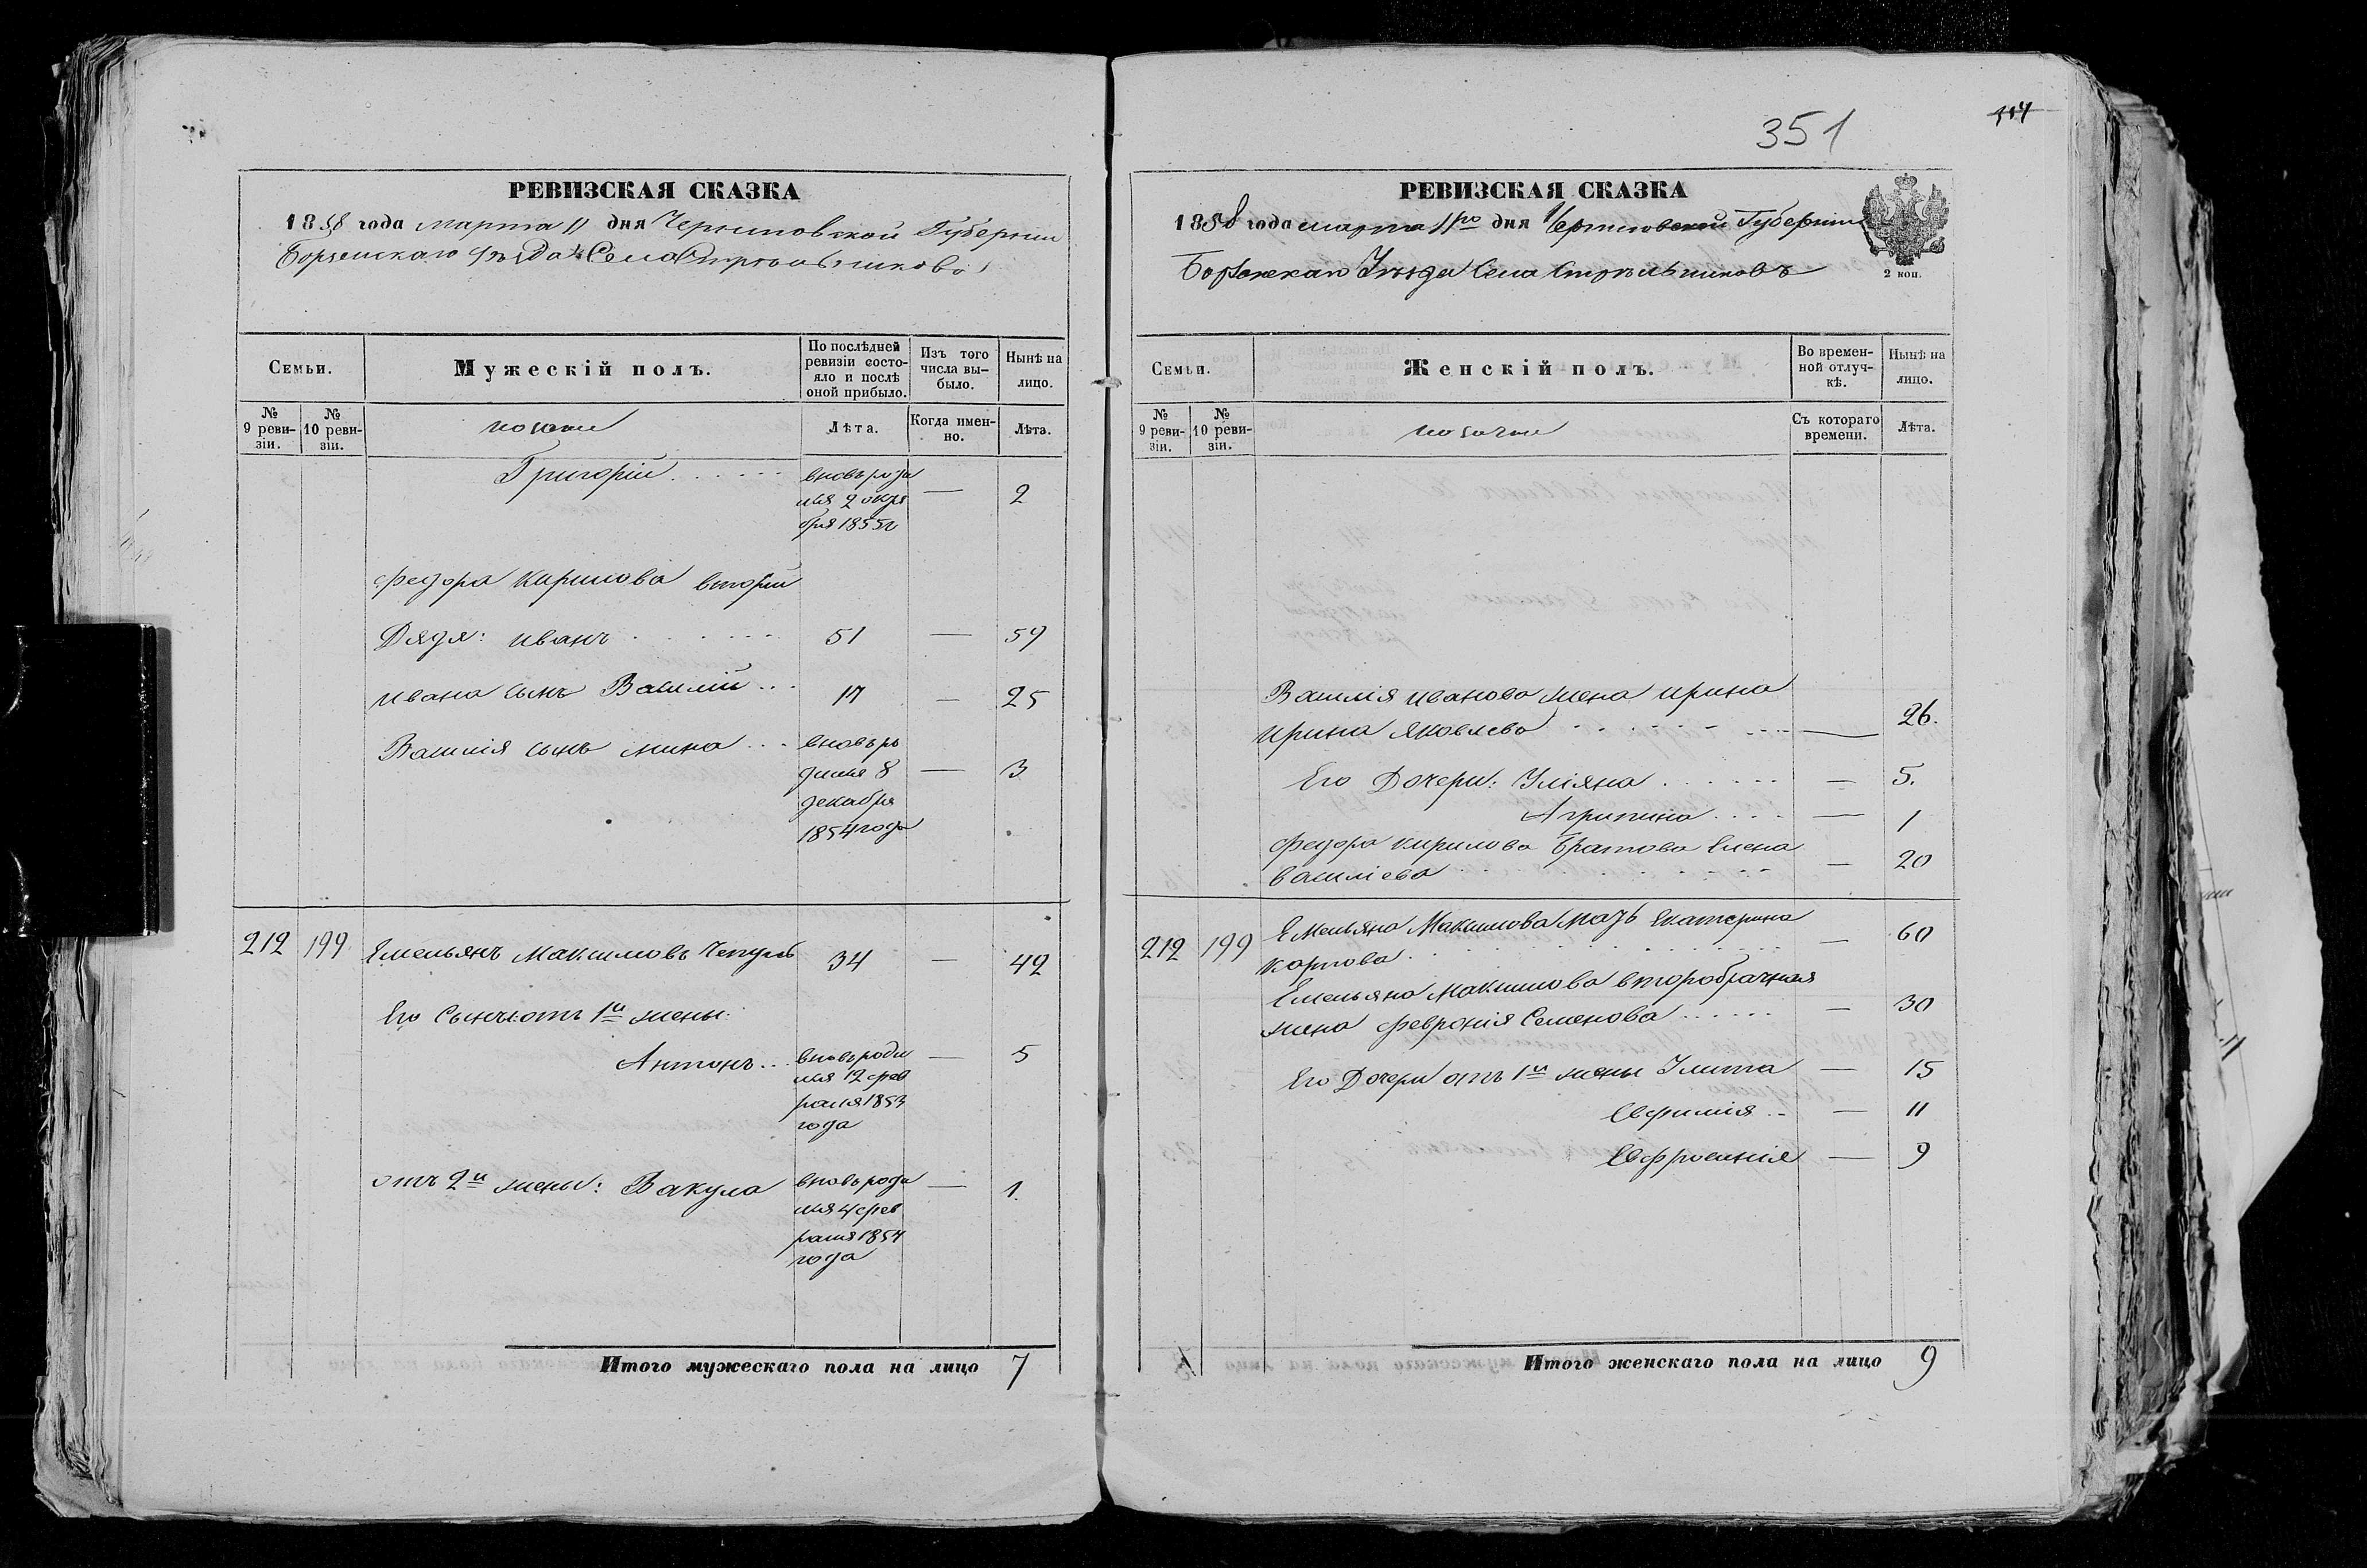 351
РЕВИЗСКАЯ СКАЗКА
1858 года марта 11 дня Черниговской Губернии
Борзенскаго уѣзда Села Стрѣльниковъ
Семьи.
Мужескій полъ.
По послѣдней ревизіи состояло и послѣ оной прибыло.
Изъ того числа выбыло.
Нынѣ на лицо.
№ 9 ревизіи.
№ 10 ревизіи.
Лѣта.
Когда именно.
Лѣта.
Григорій
вновь рода
лся 2 октя
бря 1855 г
—
2
Федора Кирилова вторый
Дядя: Иванъ
51
—
59
Ивана сынъ Василій
17
—
25
Василія сынъ Мина
вновь ро
дился 8
декабря
1854 года
—
3
212 199 Емельянъ Максимовъ
34
—
42
Его Сыны: отъ 1й жены:
Антонъ
вновь роди
лся 12 фев
раля 1853
года
—
5
отъ 2й жены: Вакула
вновь рода
лся 4 фев
раля 1857
года
—
1
Итого мужескаго пола на лицо 7
РЕВИЗСКАЯ СКАЗКА
1858 года марта 11го дня Черниговской Губерніи
Борзенскаго Уѣзда Села Стрѣльниковъ
2 коп.
Семьи.
Женскій полъ.
Во временной отлучкѣ.
Нынѣ на лицо.
№ 9 ревизіи.
№ 10 ревизіи.
Съ котораго времени.
Лѣта.
Василія Иванова жена Ирина
Ирина Яковлева
—
26.
Его Дочери: Уліяна
—
5.
Агрипина
—
1
Федора Кирилова Братова Елена
Василіева
—
20
212 199 Емельяна Максимова мать Екатерина
Карпова
—
60
Емельяна Максимова второбрачная
жена Февронія Семенова
—
30
Его Дочери отъ 1й жены Улита
—
15
Евфимія
—
11
Евфросинія
—
9
Итого женскаго пола на лицо 9